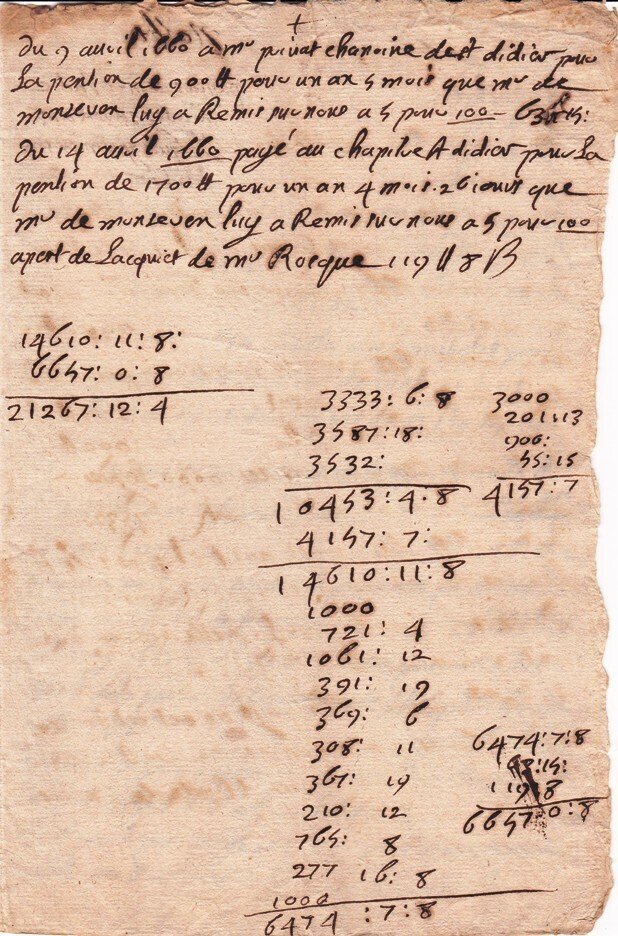 +
du 9 auvil 1660 a mr privat chanoine de st didier pour
La pention de 900 tt pour un an 5 mois que mr de
monseven luy a Remis sur nous a 5 pour 100 - 63 tt 15:
du 14 auvil 1660 payé au chapitre st didier pour La
pention de 1700 tt pour un an 4 mois. 26 iours que
mr de monseven luy a Remis sur nous a 5 pour 100
apert de Lacquict de mr Rocque 119 tt 8 ß
14610: 11: 8:
6657: 0: 8
21267: 12: 4
3333: 6: 8
3587: 18:
3532:
10453: 4. 8
4157: 7:
14610: 11: 8
3000
201: 13
900:
55: 15
4157: 7
1000
721: 4
1061: 12
391: 19
369: 6
308: 11
367: 19
210: 12
765: 8
277 16: 8
1000
6474 : 7: 8
6474: 7: 8
63: 15:
119 8
6657 0: 8